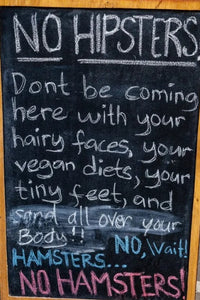 NO HIPSTERS
Dont be coming
here with your
hairy faces, your
vegan diets, your
tiny feet, and
sand all over your
Body!!
NO, Wait!
HAMSTERS...
NO HAMSTERS!